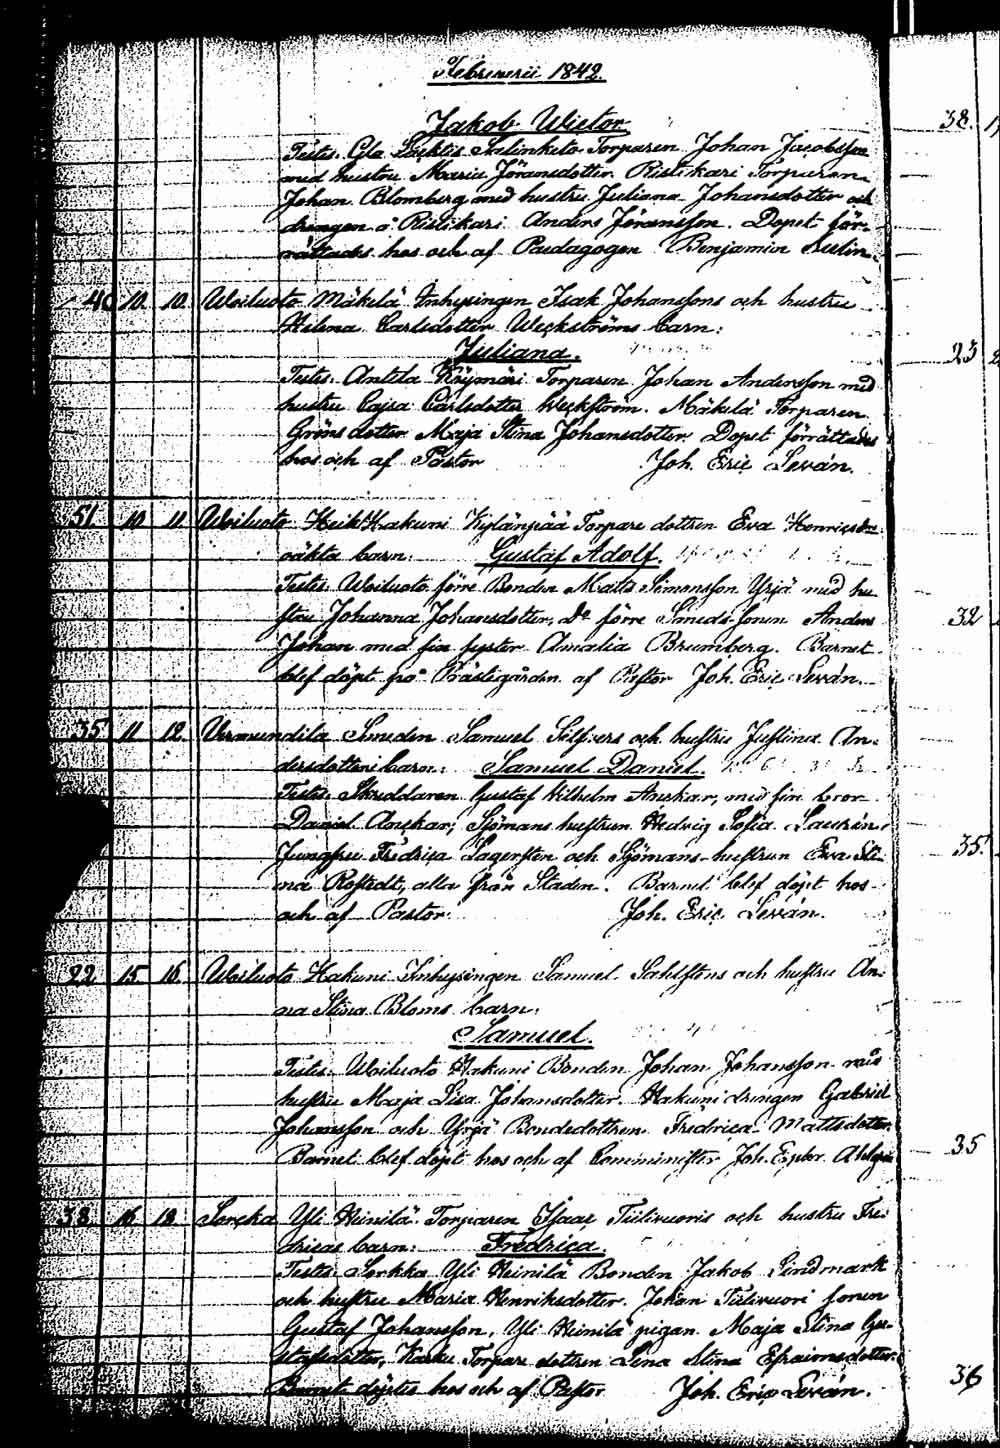 Februarii 1842.
Jakob Wictor
Testes. Torparen Johan Jacobsson
med hustru Maria Jöransdotter. Ristikari Torparen
Johan Blomberg med hustru Juliana Johansdotter och
drengen å Ristikari Anders Jöransson. Dopet för-
rättades hos och af Paedagogen Benjamin
40 10. 10. Woiluoto Mäkelä Inhysingen Isak Johanssons och hustru
Helena Carlsdotter Weckströms barn:
Juliana.
Testes. Antila Köymäri Torparen Johan Andersson med
hustru Cajsa Carlsdotter Weckström. Mäkelä Torparen
Gröns dotter Maja Stina Johansdotter. Dopet förrättades
hos och af Pastor Joh. Eric Levän.
51 10 11 Woiluoto Heik Hakuni Kylänpää Torpare dottren Eva Henricsdrs
oäkta barn: Gustaf Adolf.
Testes. Woiluoto förre Bonden Matts Simonsson Yrjä med hu
stru Johanna Johansdotter, Do förre Smeds sonen Anders
Johan med sin syster Amalia Brumberg. Barnet
blef döpt på Prästegården af Pastor Joh. Eric Levän.
35 11 12. Vermundila Smeden Samuel Silfvers och hustru Justina An-
dersdotters barn: Samuel Daniel.
Testes. Skreddaren Gustaf Vilhelm Anckar, med sin bror
Daniel Anckar, Sjömans hustrun Hedvig Sofia Laurén,
Jungfru Fredrica Lagersten och Sjömans-hustrun Eva Sti-
na Rostedt, alla från Staden. Barnet blef döpt hos
och af Pastor Joh. Eric Levän.
22 15 16. Woiluoto Hakuni Inhysingen Samuel Sahlstens och hustru An-
na Stina Bloms barn:
Samuel.
Testes. Woiluoto Hakuni Bonden Johan Johansson med
hustru Maja Lisa Johansdotter. Hakuni drengen Gabriel
Johansson och Yrjä Bondedottren Fredrica Mattsdotter.
Barnet blef döpt hos och af Comminister Joh.
38 16 18 Sorcka Yli Heinilä Torparen Isaac Tiilivuoris och hustru Fre-
dricas barn: Fredrica.
Testes. Sorkka Yli Heinilä Bonden Jakob Lindmark
och hustru Maria Henriksdotter. Johan Tiilivuori sonen
Gustaf Johansson, Yli Heinilä pigan Maja Stina Gu-
stafsdotter, Torpare dottren Lena Stina Efraimsdotter.
Barnet döptes hos och af Pastor Joh. Eric Levän.
38.
23
32
35.
35
36